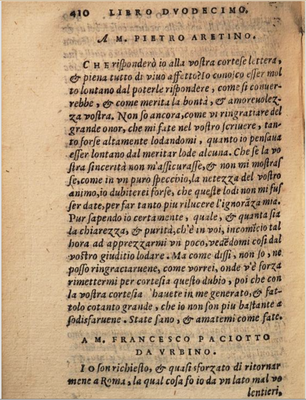 410 LIBRO DVODECIMO.
A M. PIETRO ARETINO.
CHE risponderò io alla vostra cortese lettera,
& piena tutto di viuo affetto? Io conosco esser mol
to lontano dal poterle rispondere, come si conuer-
rebbe, & come merita la bontà, & amoreuolez-
za vostra. Non so ancora, come vi ringratiare del
grande onor, che mi fate nel vostro scriuere, tan-
to forse altamente lodandomi, quanto io pensaua
esser lontano dal meritar lode alcuna. Che se la vo
stra sincerità non m'assicurasse, & non mi mostras
se, come in vn puro specchio, la nettezza del vostro
animo, io dubiterei forse, che queste lodi non mi fus
ser date, per far tanto piu rilucere l'ignorāza mia.
Pur sapendo io certamente, quale, & quanta sia
la chiarezza, & purità, ch'è in voi, incomicio tal
hora ad apprezzarmi vn poco, vedēdomi cosi dal
vostro giuditio lodare. Ma come dissi, non so, ne
posso ringratiaruene, come vorrei, onde v'è forza
rimettermi per cortesia questo dubio, poi che con
la vostra cortesia l'hauete in me generato, & fat-
tolo cotanto grande, che io non son piu bastante a
sodisfaruene. State sano, & amatemi come fate.
A M. FRANCESCO PACIOTTO
DA VRBINO.
Io son richiesto, & quasi sforzato di ritornar
mene a Roma, la qual cosa so io da vn lato mal vo
lentieri,